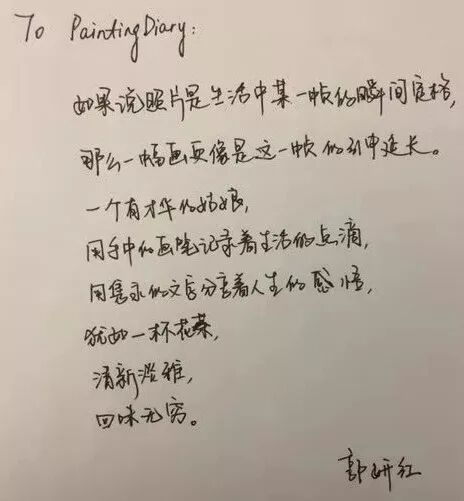 To PaintingDiary:
如果说照片是生活中某一帧的瞬间定格,
那么一幅画更像是这一帧的引申延长。
一个有才华的姑娘,
用手中的画笔记录着生活的点滴,
用隽永的文字分享着人生的感悟,
犹如一杯花茶,
清新淡雅,
回味无穷。
郭妍红